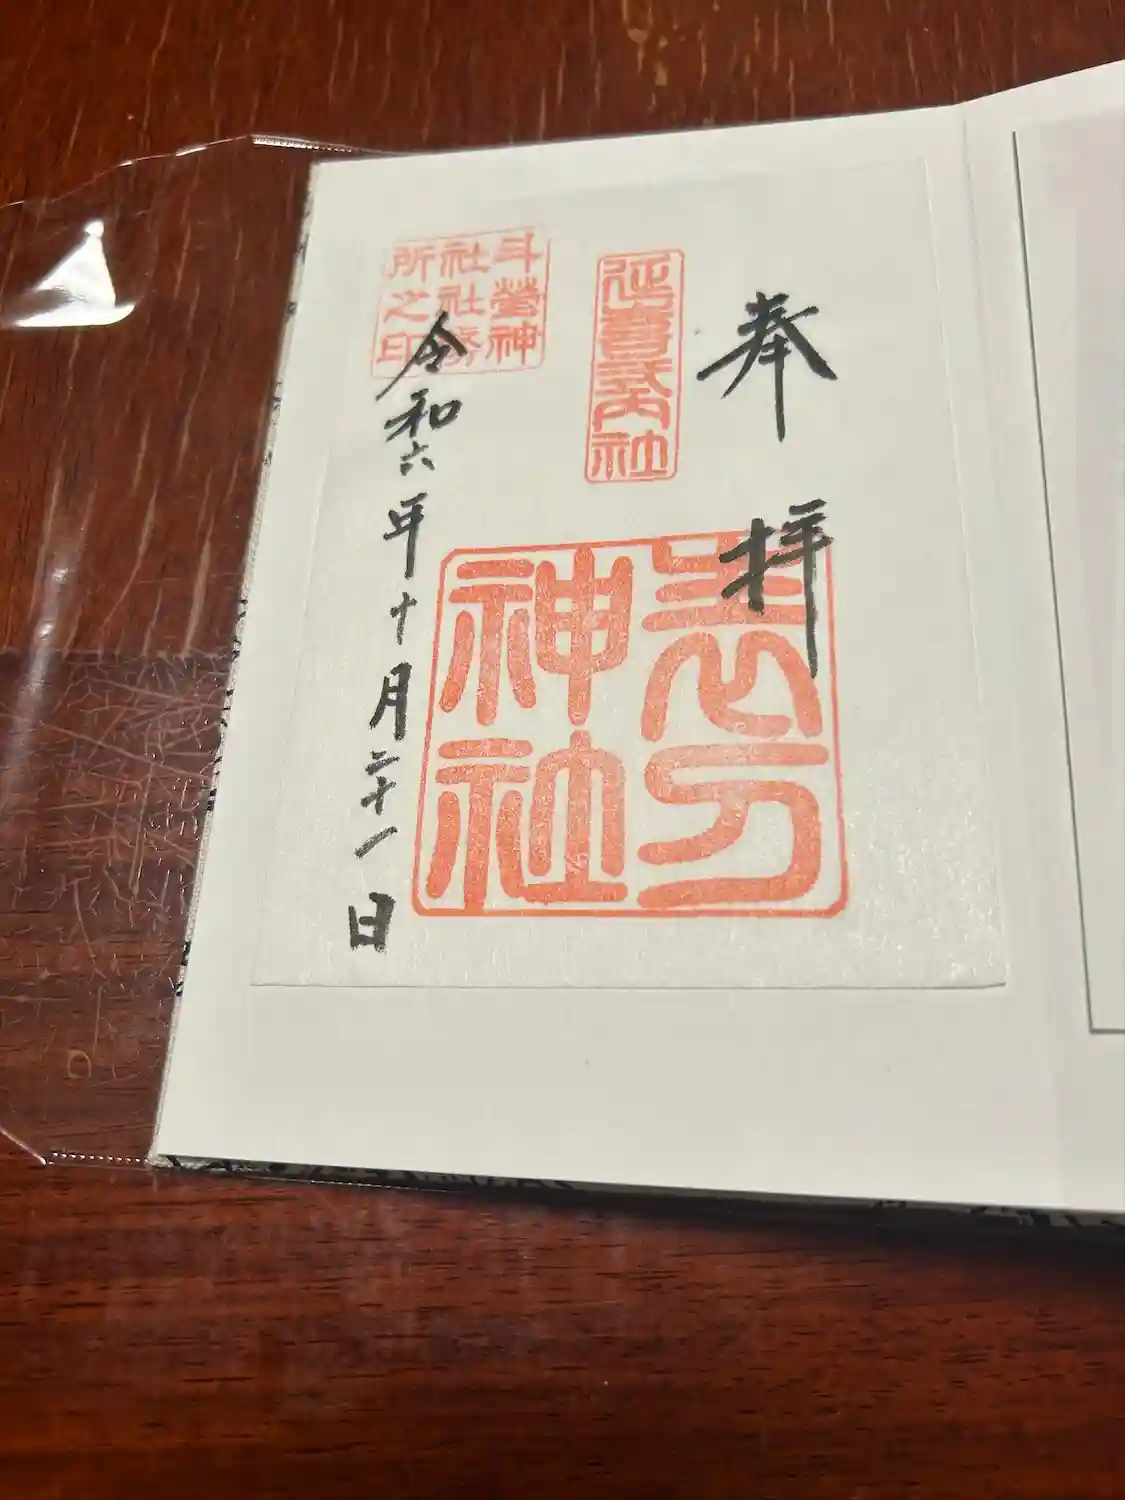 奉拝
延喜式内社
表刀
神社
斗螢神
社社務
所之印
令和六年十月二十一日